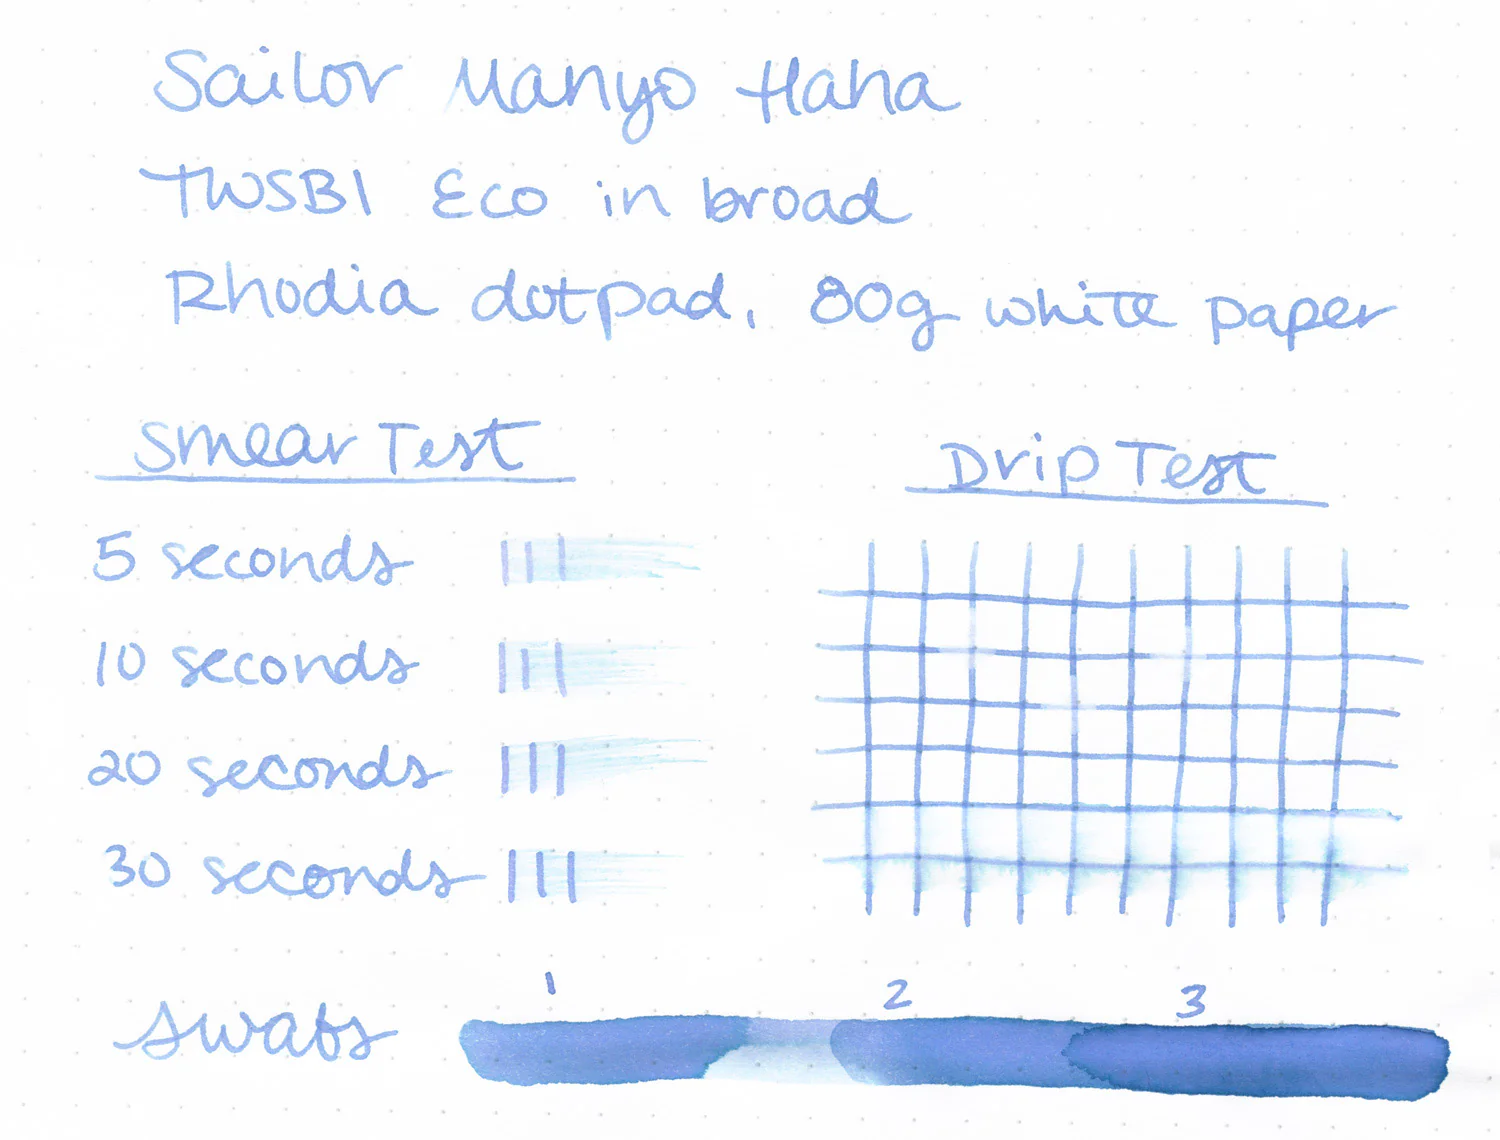 Sailor Manyo Haha
TWSBI Eco in broad
Rhodia dotpad, 80g white paper
Smear Test
Drip Test
5 seconds
10 seconds
20 seconds
30 seconds
1 2 3
Swabs